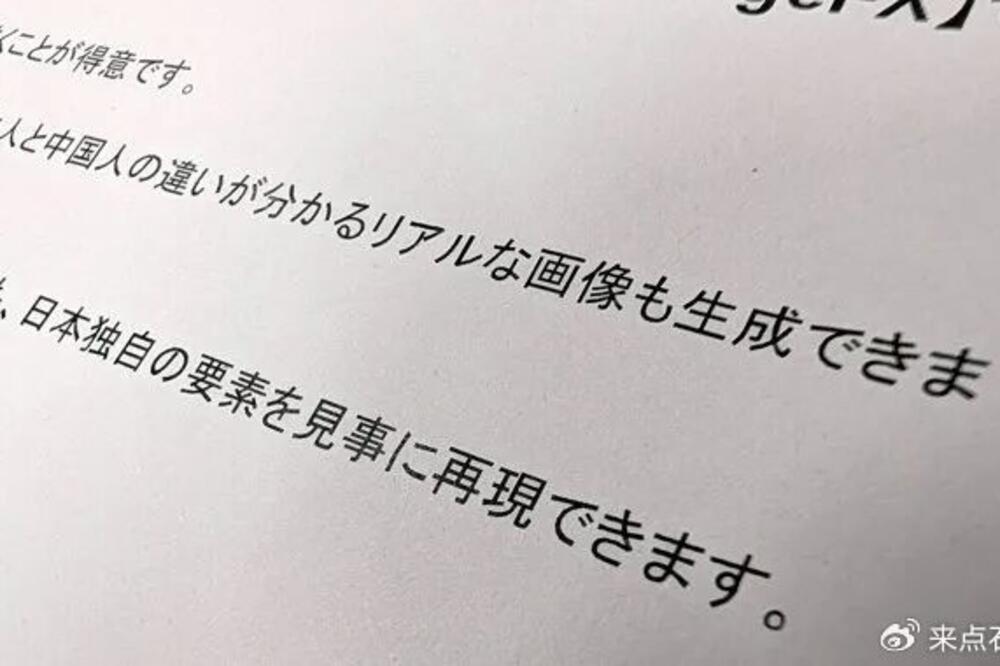 geFX】
くことが得意です。
人と中国人の違いが分かるリアルな画像も生成できま
、日本独自の要素を見事に再現できます。
来点